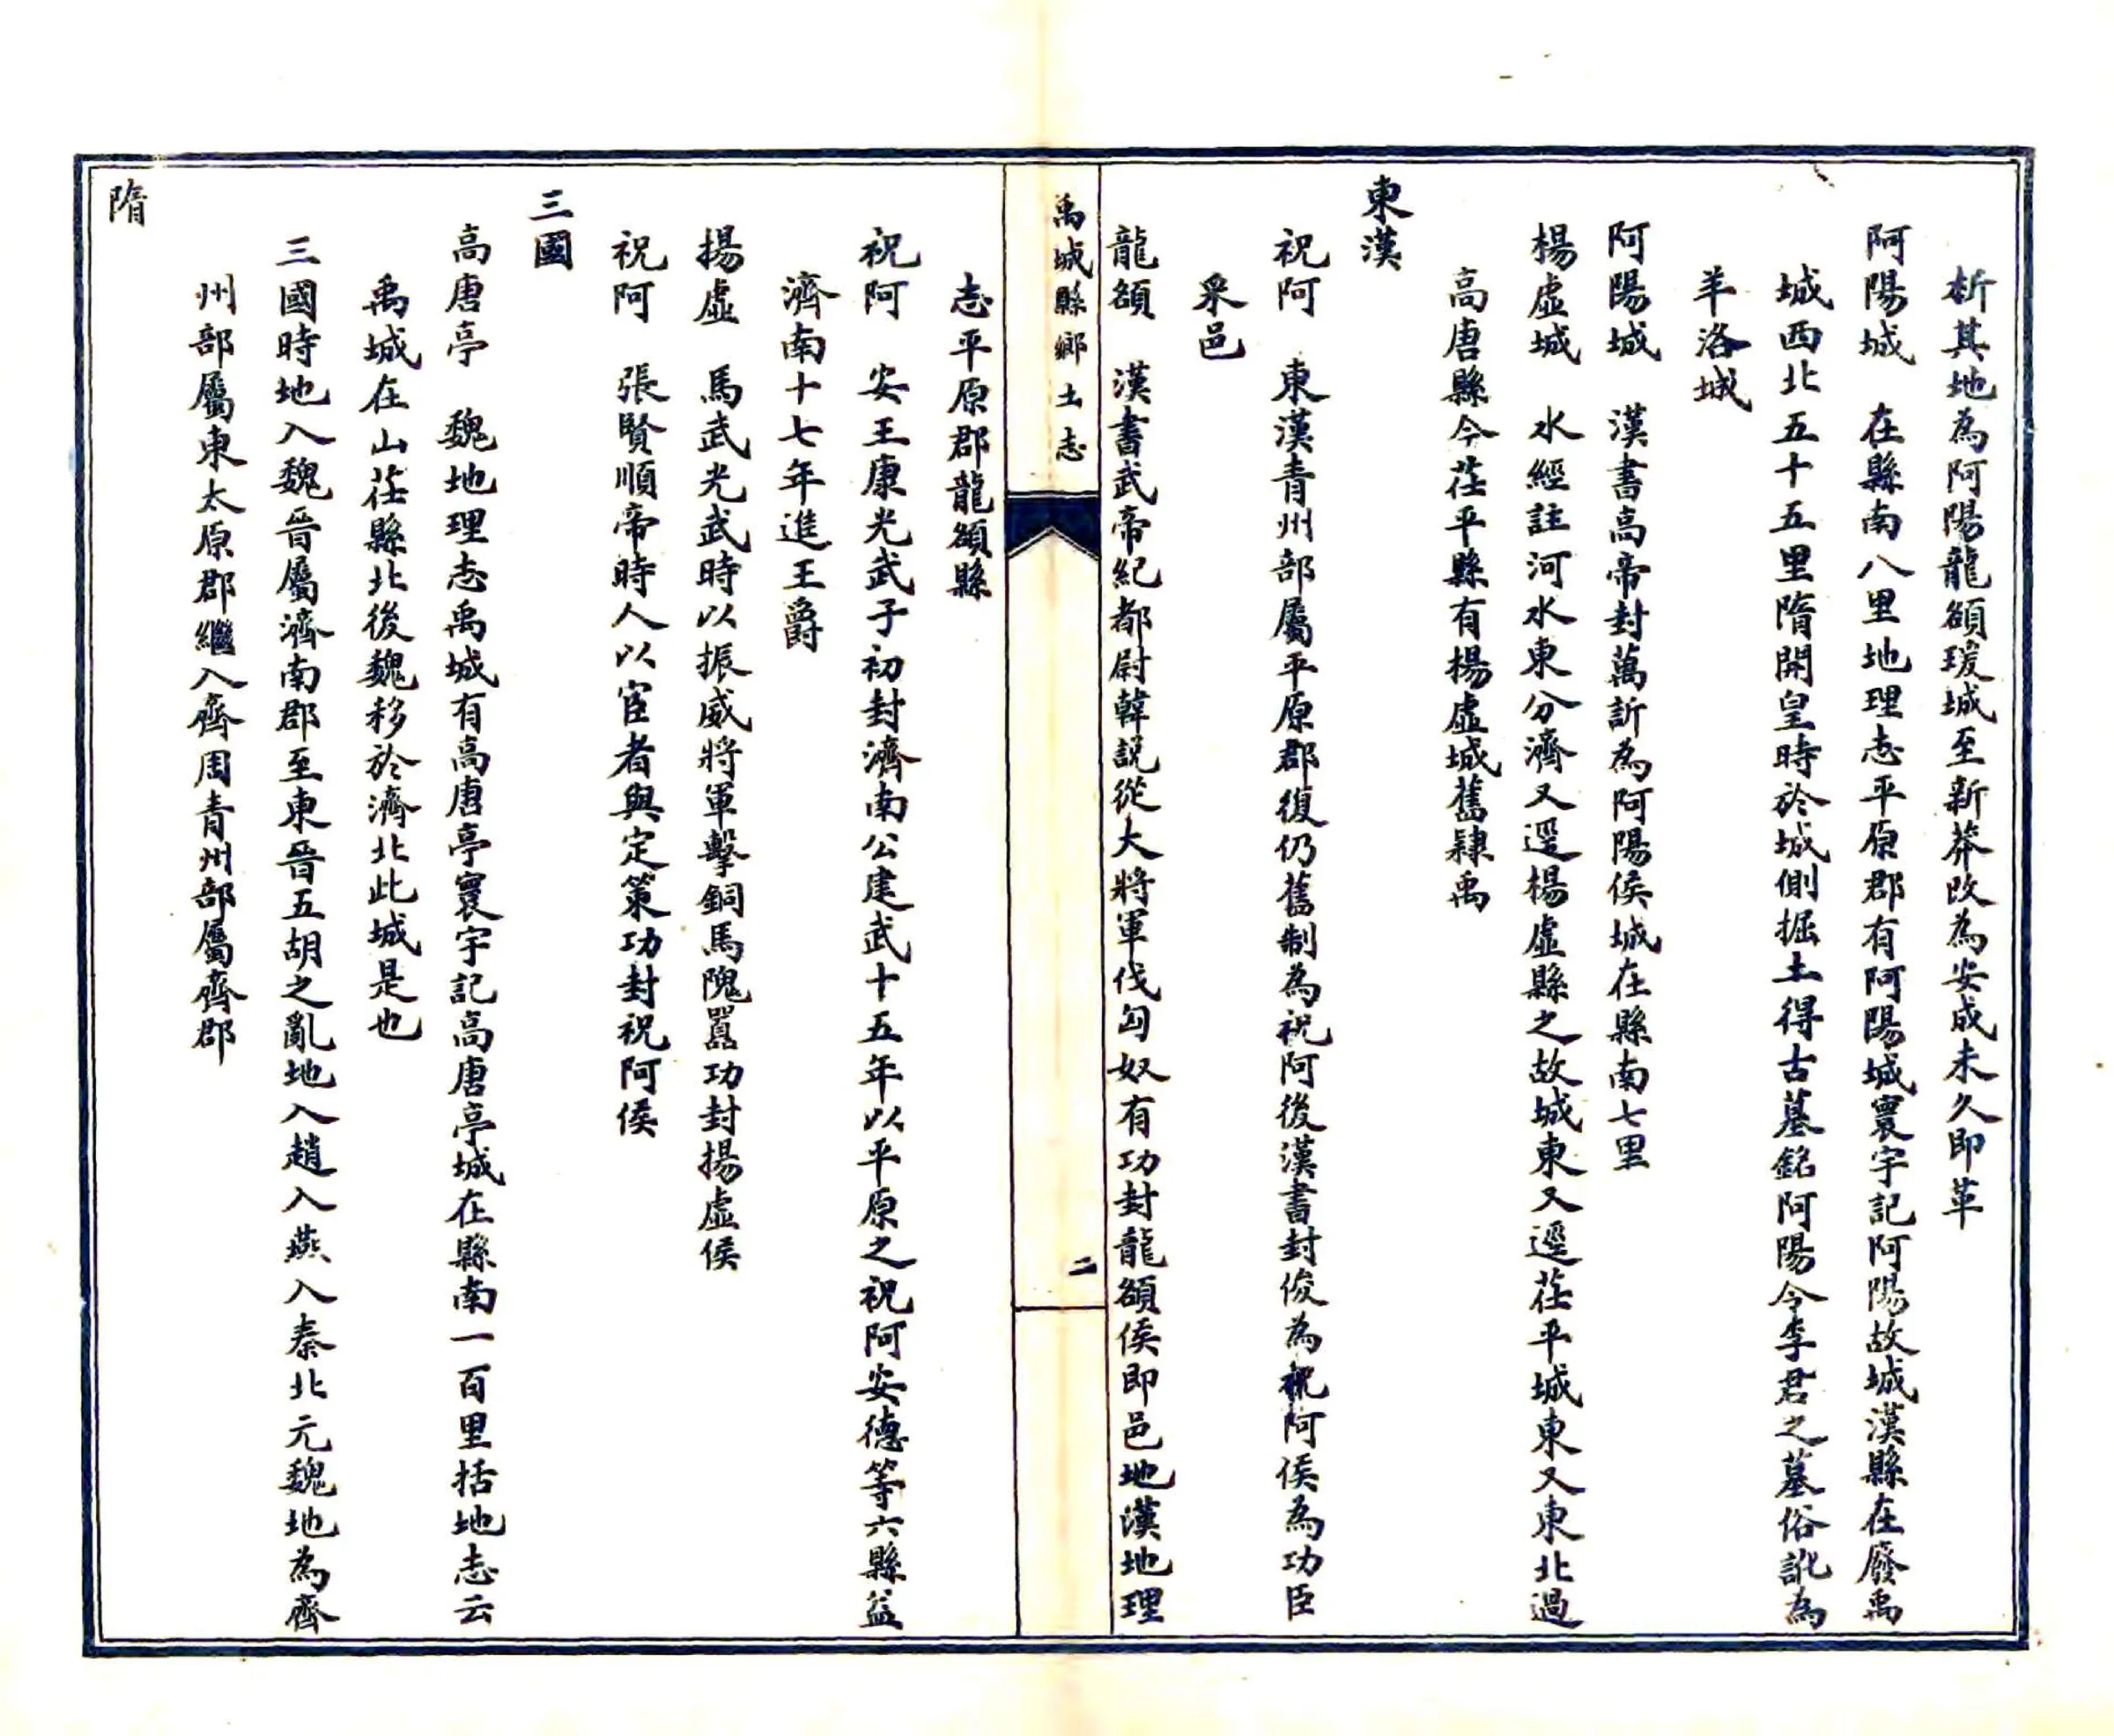 析其地為阿陽龍頟瑗城至新莽改為安成未久即革
阿陽城　在縣南八里地理志平原郡有阿陽城寰宇記阿陽故城漢縣在廢禹
城西北五十五里隋開皇時於城側掘土得古墓銘阿陽令李君之墓俗訛為
羊洛城
阿陽城　漢書高帝封萬訢為阿陽侯城在縣南七里
楊虛城　水經註河水東分濟又逕楊虛縣之故城東又逕茌平城東又東北過
高唐縣今茌平縣有揚虛城舊隸禹
東漢
祝阿　東漢青州部屬平原郡復仍舊制為祝阿後漢書封俊為祝阿侯為功臣
采邑
龍頟　漢書武帝紀都尉韓説從大將軍伐匈奴有功封龍頟侯即邑地漢地理
禹城縣鄉土志
二
志平原郡龍頟縣
祝阿　安王康光武子初封濟南公建武十五年以平原之祝阿安德等六縣益
濟南十七年進王爵
揚虛　馬武光武時以振威將軍擊銅馬隗囂功封揚虛侯
祝阿　張賢順帝時人以宦者與定策功封祝阿侯
三國
高唐亭　魏地理志禹城有高唐亭寰宇記高唐亭城在縣南一百里括地志云
禹城在山茌縣北後魏移於濟北此城是也
三國時地入魏晉屬濟南郡至東晉五胡之亂地入趙入燕入秦北元魏地為齊
州部屬東太原郡繼入齊周青州部屬齊郡
隋